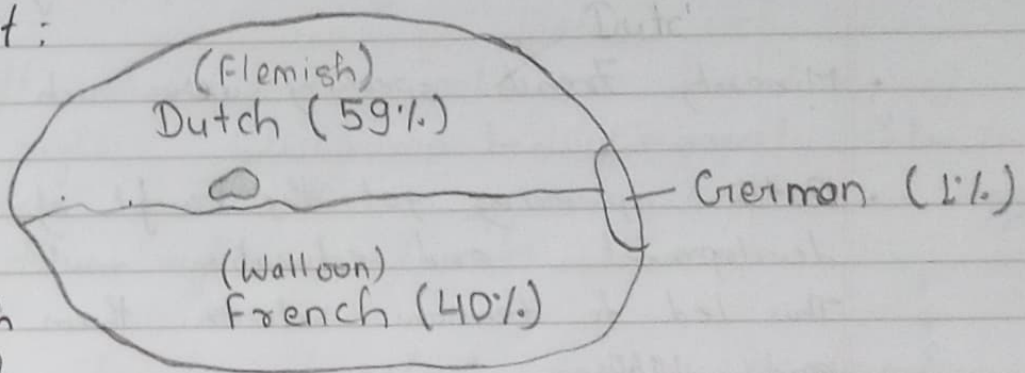 t :
(Flemish)
Dutch (59%)
German (1%)
(Walloon)
French (40%)